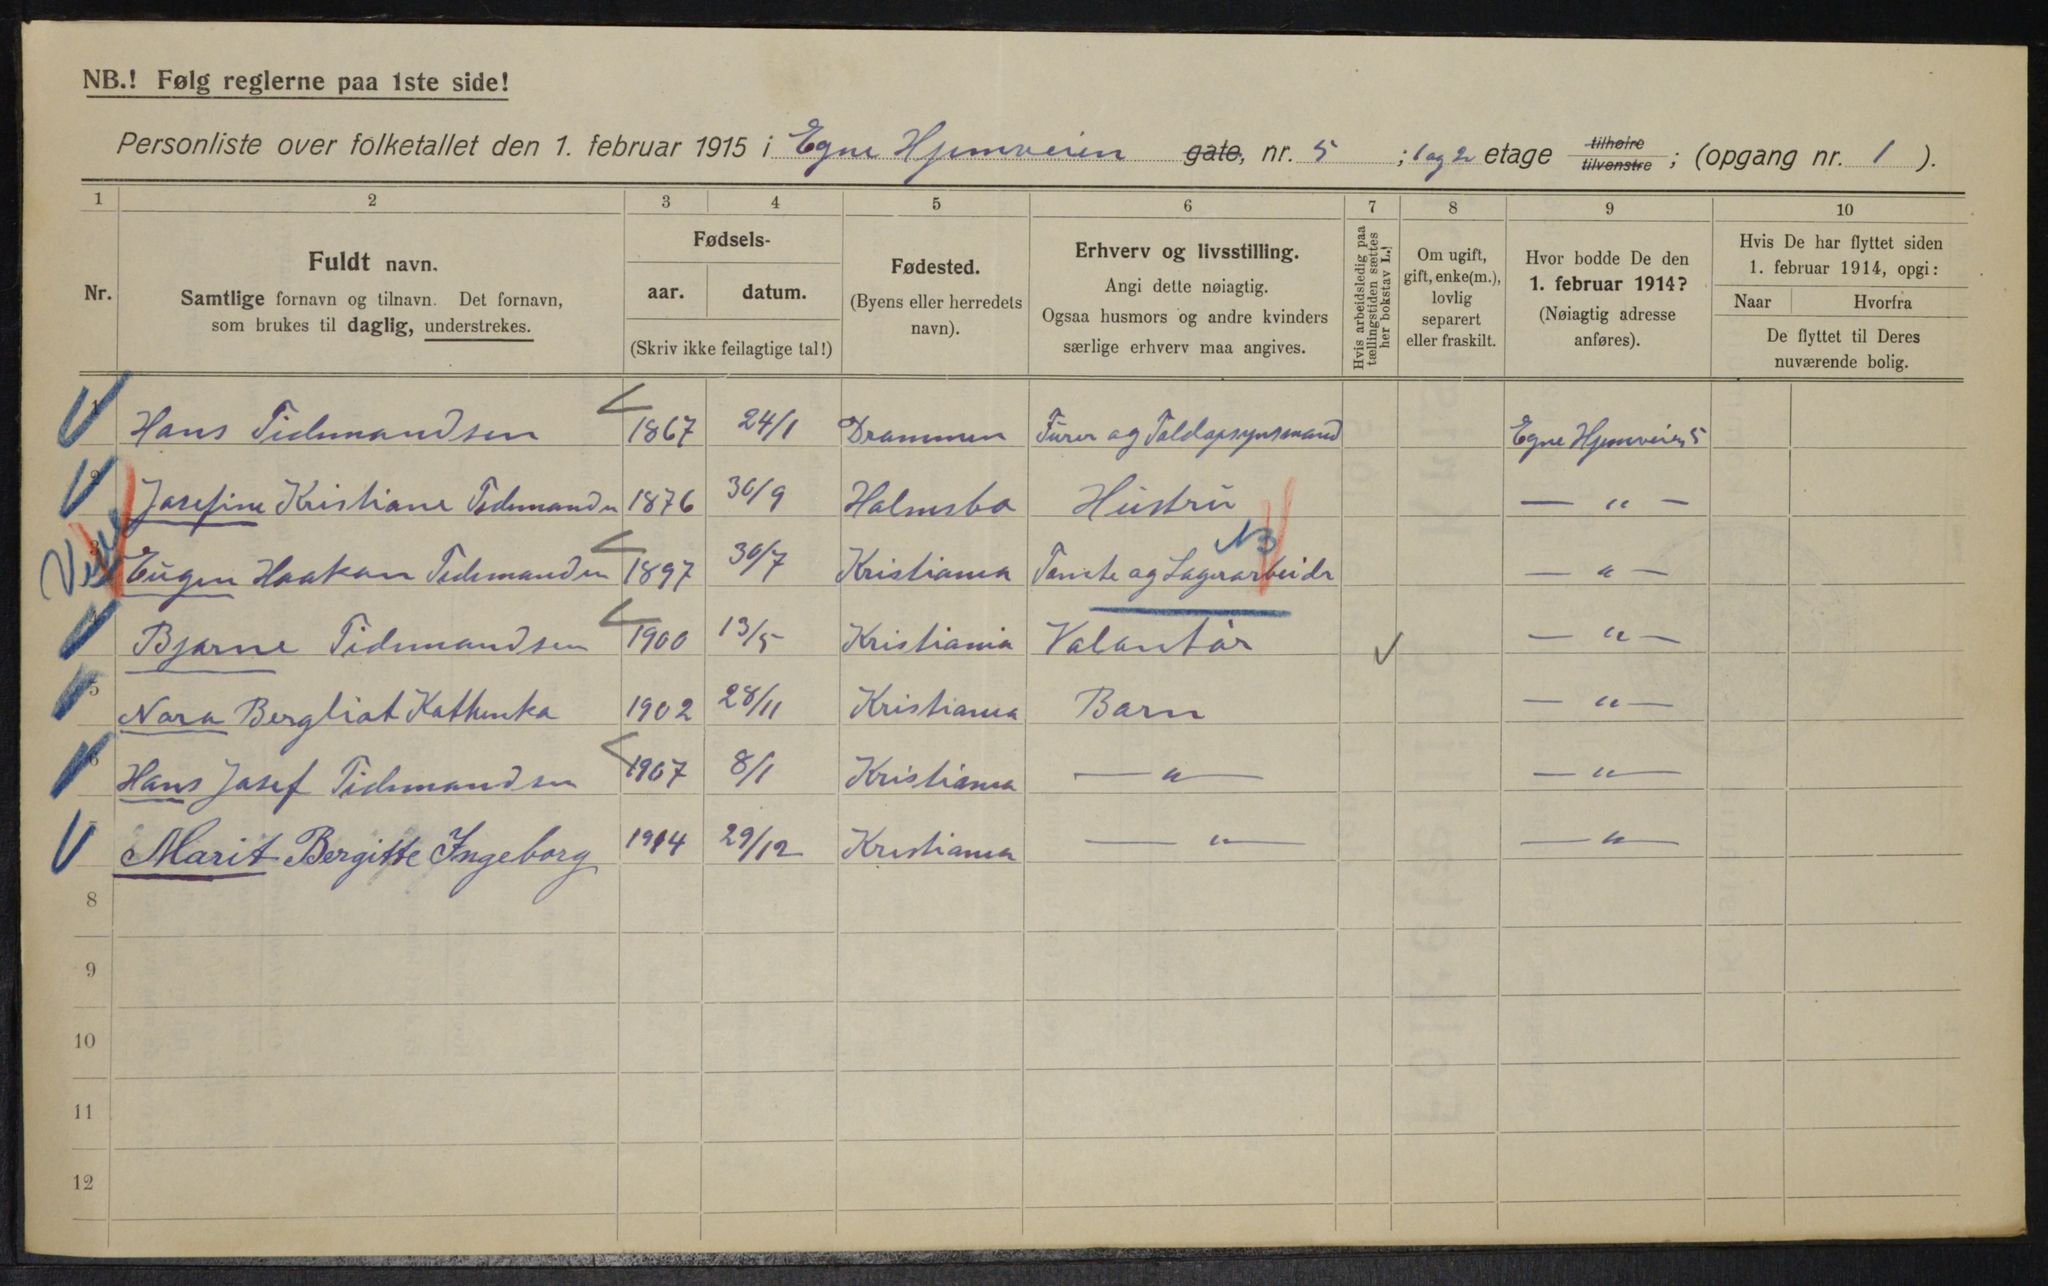 NB.! Følg reglerne paa 1ste side!
Personliste over folketallet den 1. februar 1915 i Egne Hjemveien gate, nr. 5 ; 1 og 2 etage tilhøire tilvenstre ; (opgang nr. 1 ).
1 2 3 4 5 6 7 8 9 10
Nr.
Fuldt navn.
Samtlige fornavn og tilnavn. Det fornavn,
som brukes til daglig, understrekes.
Fødsels-
aar. datum.
(Skriv ikke feilagtige tal!)
Fødested.
(Byens eller herredets
navn).
Erhverv og livsstilling.
Angi dette nøiagtig.
Ogsaa husmors og andre kvinders
særlige erhverv maa angives.
Hvis arbeidsledig paa
tællingstiden sættes
her bokstav L.
Om ugift,
gift, enke(m.),
lovlig
separert
eller fraskilt.
Hvor bodde De den
1. februar 1914?
(Nøiagtig adresse
anføres).
Hvis De har flyttet siden
1. februar 1914, opgi:
Naar Hvorfra
De flyttet til Deres
nuværende bolig.
1 Hans Tidemandsen 1867 24/1 Drammen Furer og Toldopsynsmand Egne Hjemveien 5
2 Josefine Kristiane Tidemandsen 1876 30/9 Holmsbo Hustru — " —
3 Eugen Haakon Tidemandsen 1897 30/7 Kristiania Tomte og Lagerarbeider — " —
4 Bjarne Tidemandsen 1900 13/5 Kristiania Volontør — " —
5 Nora Bergliot Kathinka 1902 28/11 Kristiania Barn — " —
6 Hans Josef Tidemandsen 1907 8/1 Kristiania — " — — " —
Marit Bergitte Ingeborg 1914 29/12 Kristiania — " — — " —
8
9
10
11
12